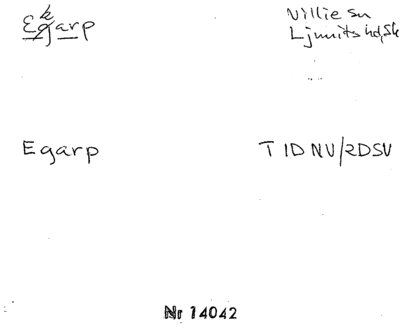 Egarp
Villie sn
Ljunits hd, Sk
Egarp
T 1D NV/2D SV
Nr 14042